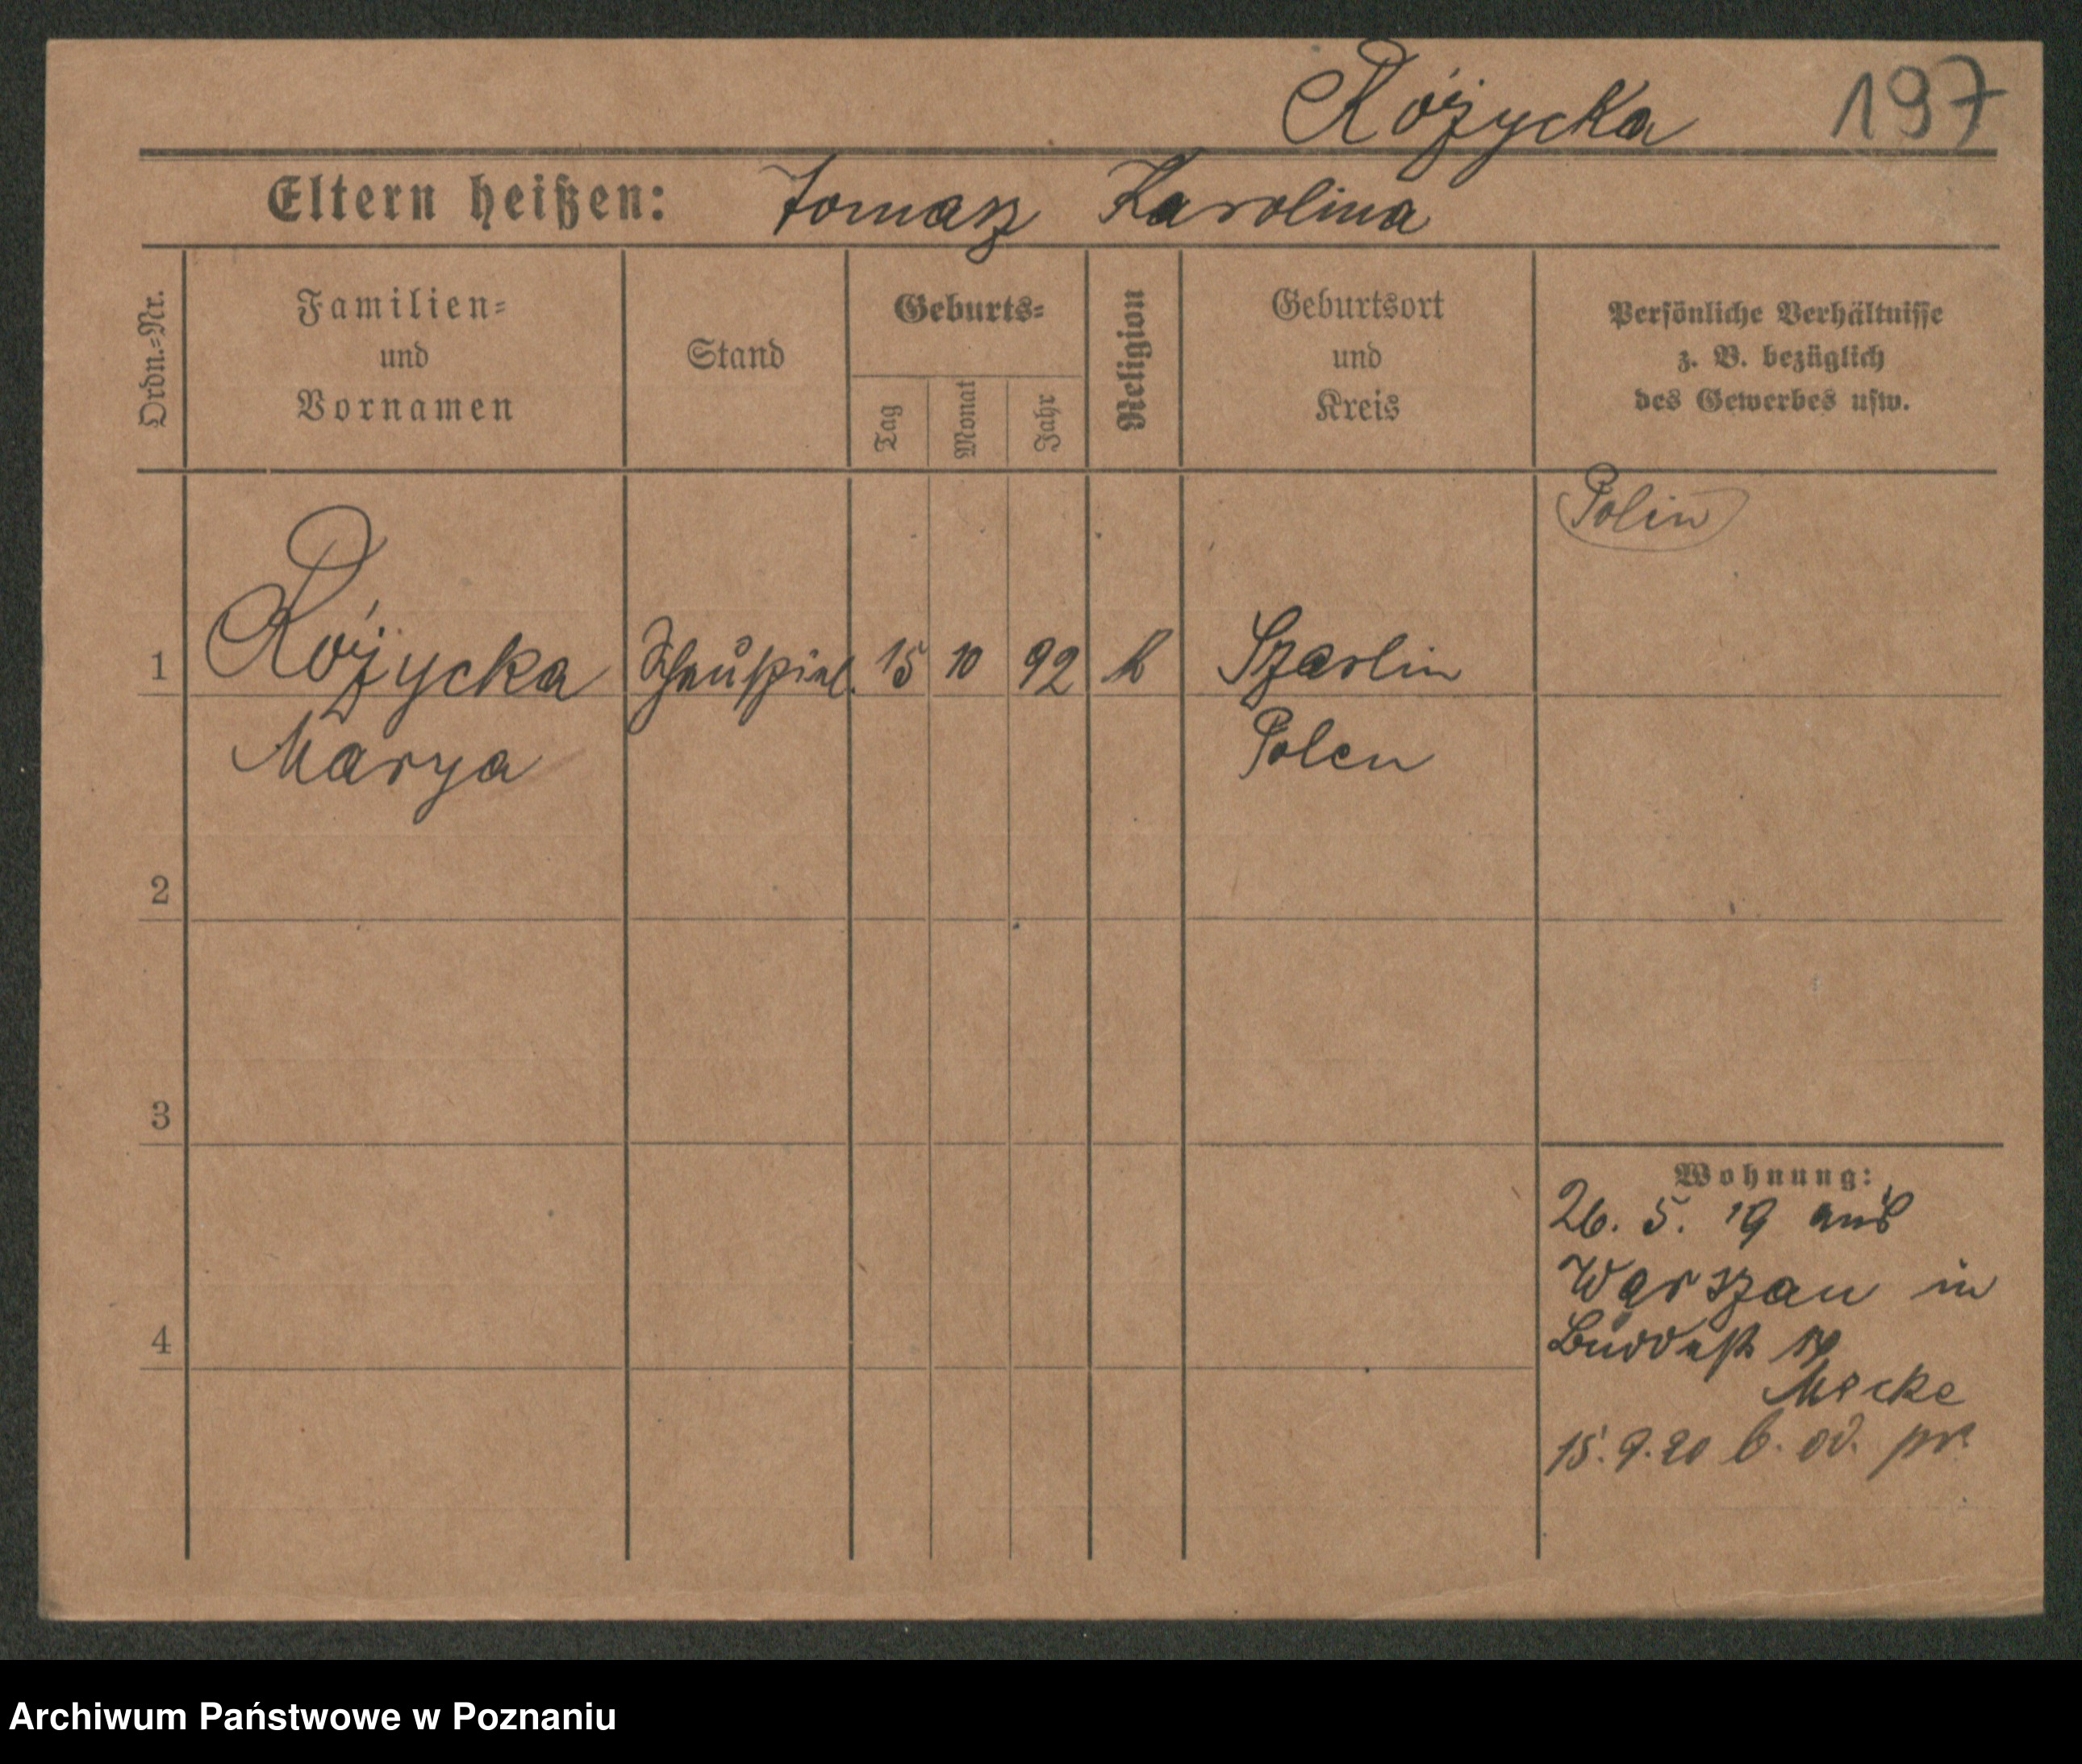 Różycka 197
Eltern heißen: Tomasz Karolina
Ordn.-Nr.
Familien-
und
Vornamen
Stand
Geburts-
Tag
Monat
Jahr
Religion
Geburtsort
und
Kreis
Persönliche Verhältnisse
z. B. bezüglich
des Gewerbes usw.
Polin
1 Różycka Schauspiel. 15 10 92 k Szarlin
Marya Polen
2
3
4
Wohnung:
26. 5. 19 aus
Warszau in
15.9.20 b. od. pr
Archiwum Państwowe w Poznaniu